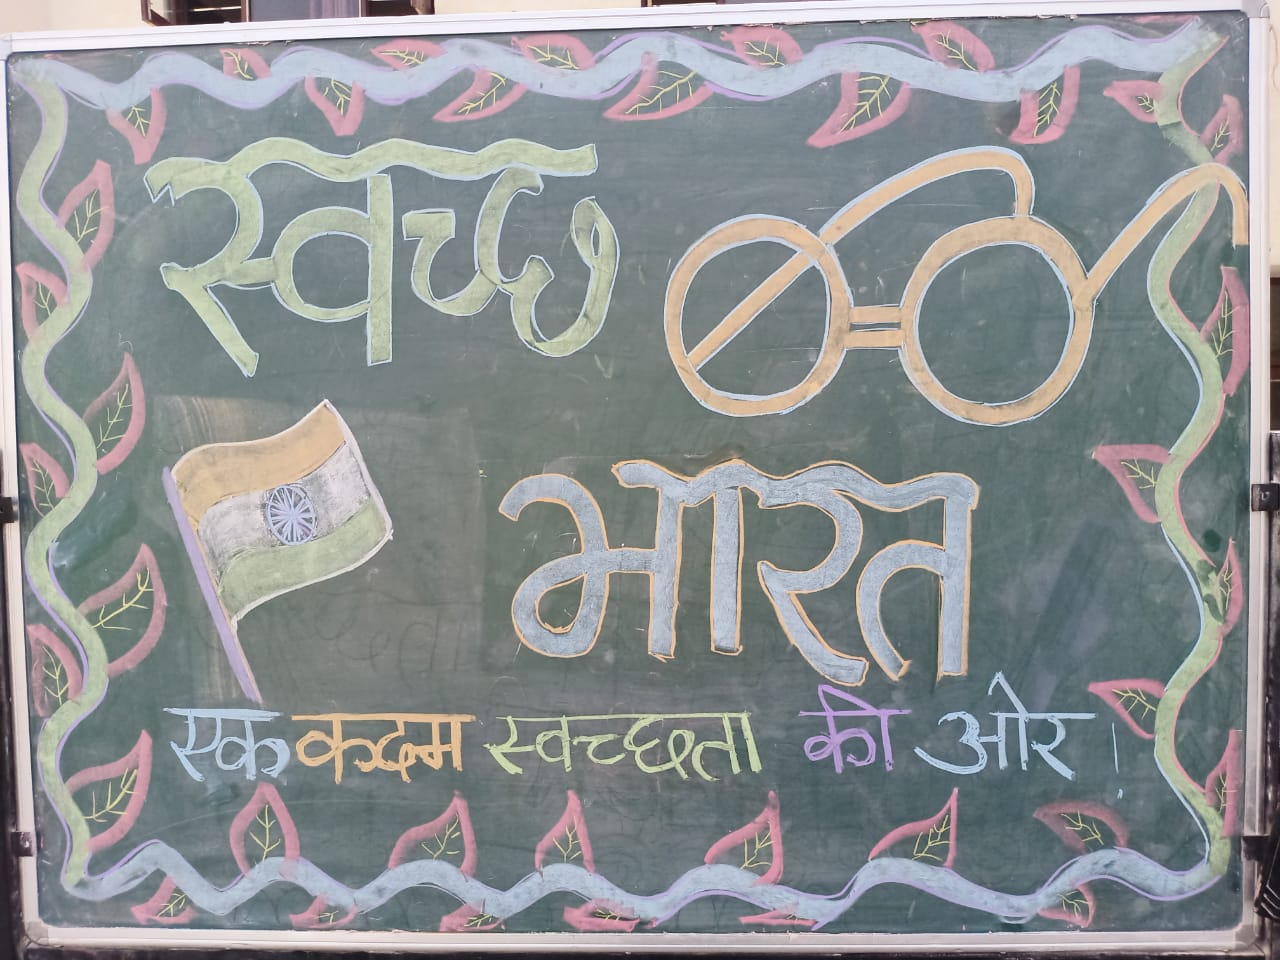 स्वच्छ
भारत
एक कदम स्वच्छता की ओर।